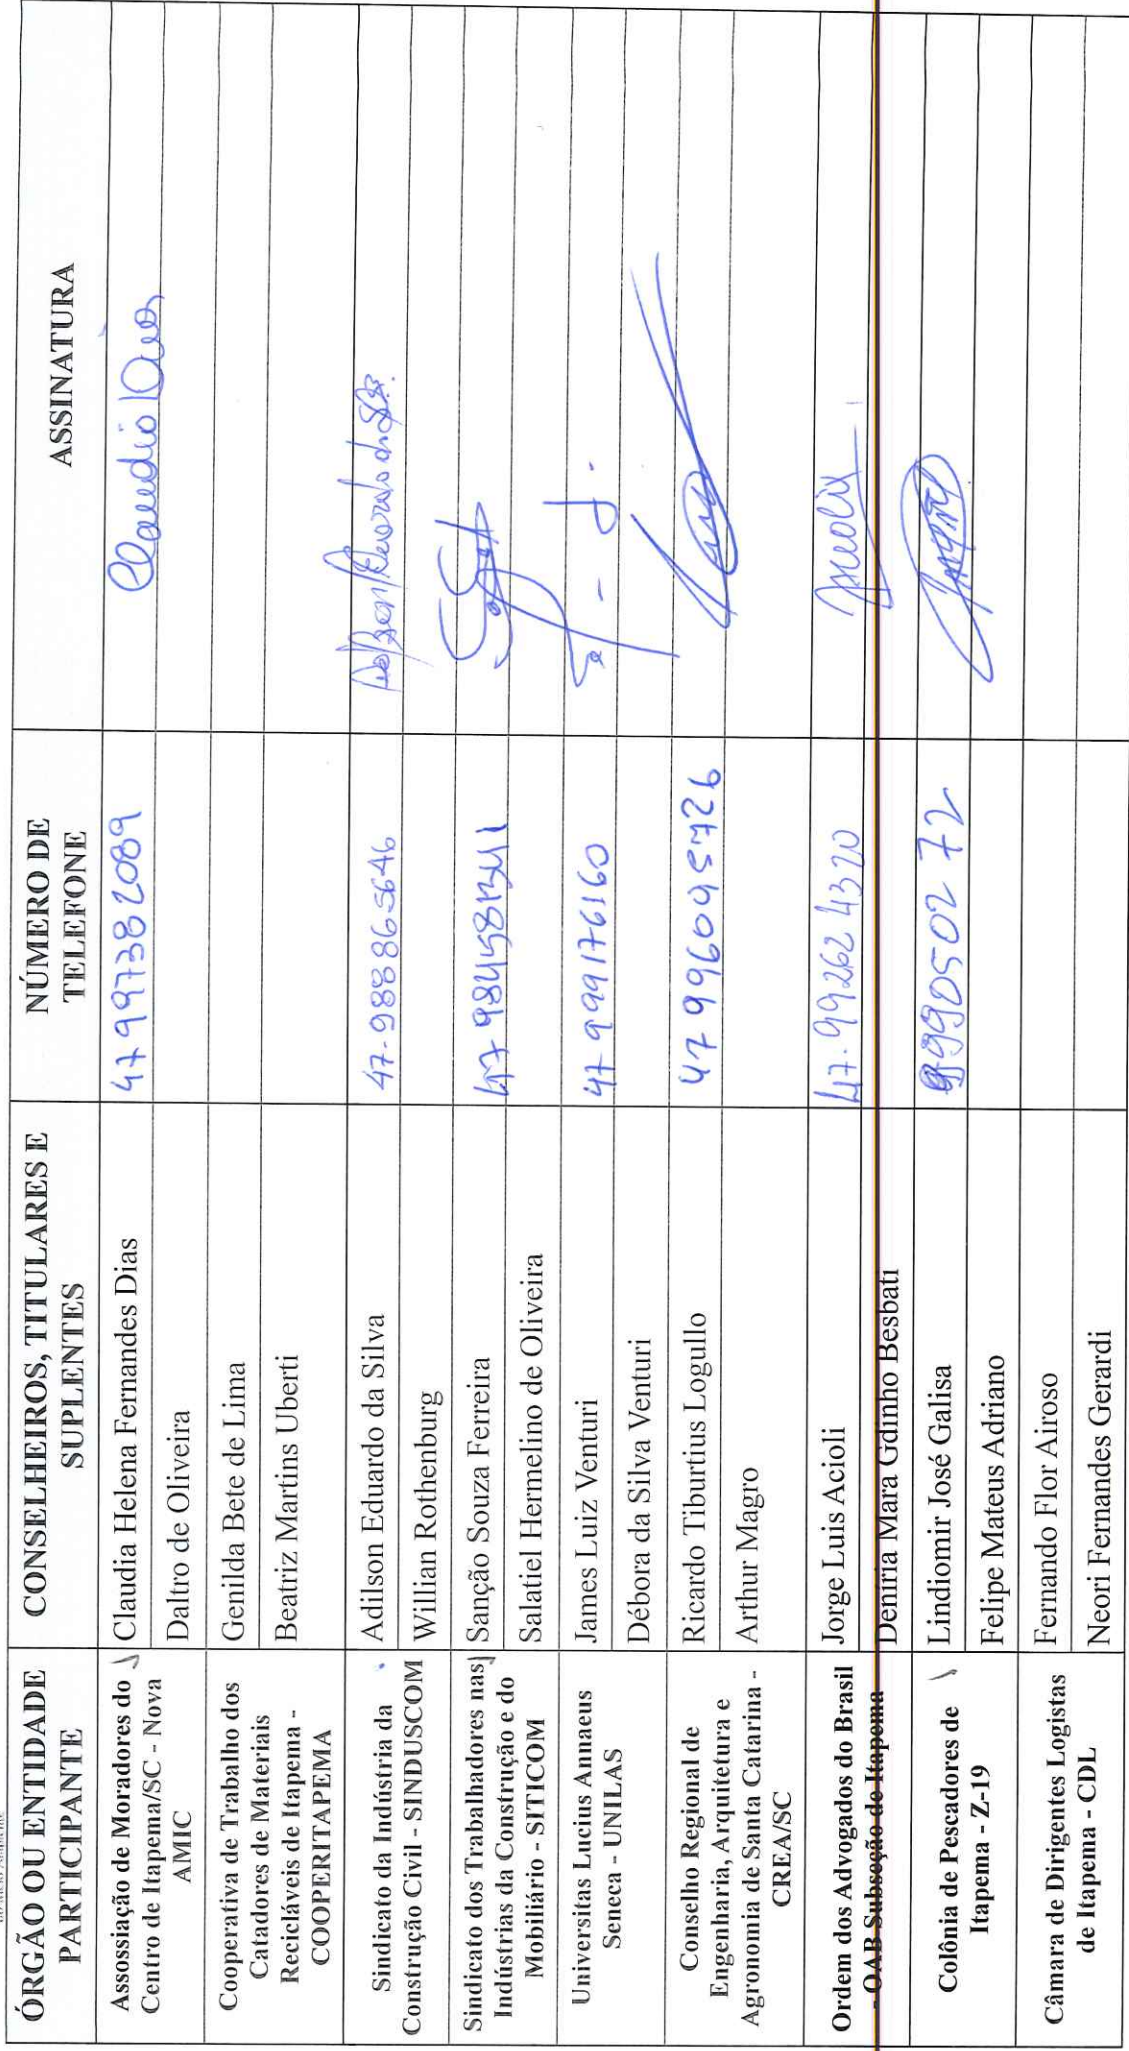 ÓRGÃO OU ENTIDADE
PARTICIPANTE
CONSELHEIROS, TITULARES E
SUPLENTES
NÚMERO DE
TELEFONE
ASSINATURA
Assossiação de Moradores do
Centro de Itapema/SC - Nova
AMIC
Claudia Helena Fernandes Dias
47 997382089
Claudia Dias
Daltro de Oliveira
Cooperativa de Trabalho dos
Catadores de Materiais
Recicláveis de Itapema -
COOPERITAPEMA
Genilda Bete de Lima
Beatriz Martins Uberti
Sindicato da Indústria da
Construção Civil - SINDUSCOM
Adilson Eduardo da Silva
47-988865646
Willian Rothenburg
Sindicato dos Trabalhadores nas
Indústrias da Construção e do
Mobiliário - SITICOM
Sanção Souza Ferreira
Salatiel Hermelino de Oliveira
Universitas Lucius Annaeus
Seneca - UNILAS
Janes Luiz Venturi
47 999176160
Débora da Silva Venturi
Conselho Regional de
Engenharia, Arquitetura e
Agronomia de Santa Catarina -
CREA/SC
Ricardo Tiburtius Logullo
47 996045726
Arthur Magro
Ordem dos Advogados do Brasil
- OAB Subseção de Itapema
Jorge Luis Acioli
47. 99262 4320
Deníria Mara Gdinho Besbati
Colônia de Pescadores de
Itapema - Z-19
Lindiomir José Galisa
990502 72
Felipe Mateus Adriano
Câmara de Dirigentes Logistas
de Itapema - CDL
Fernando Flor Airoso
Neori Fernandes Gerardi